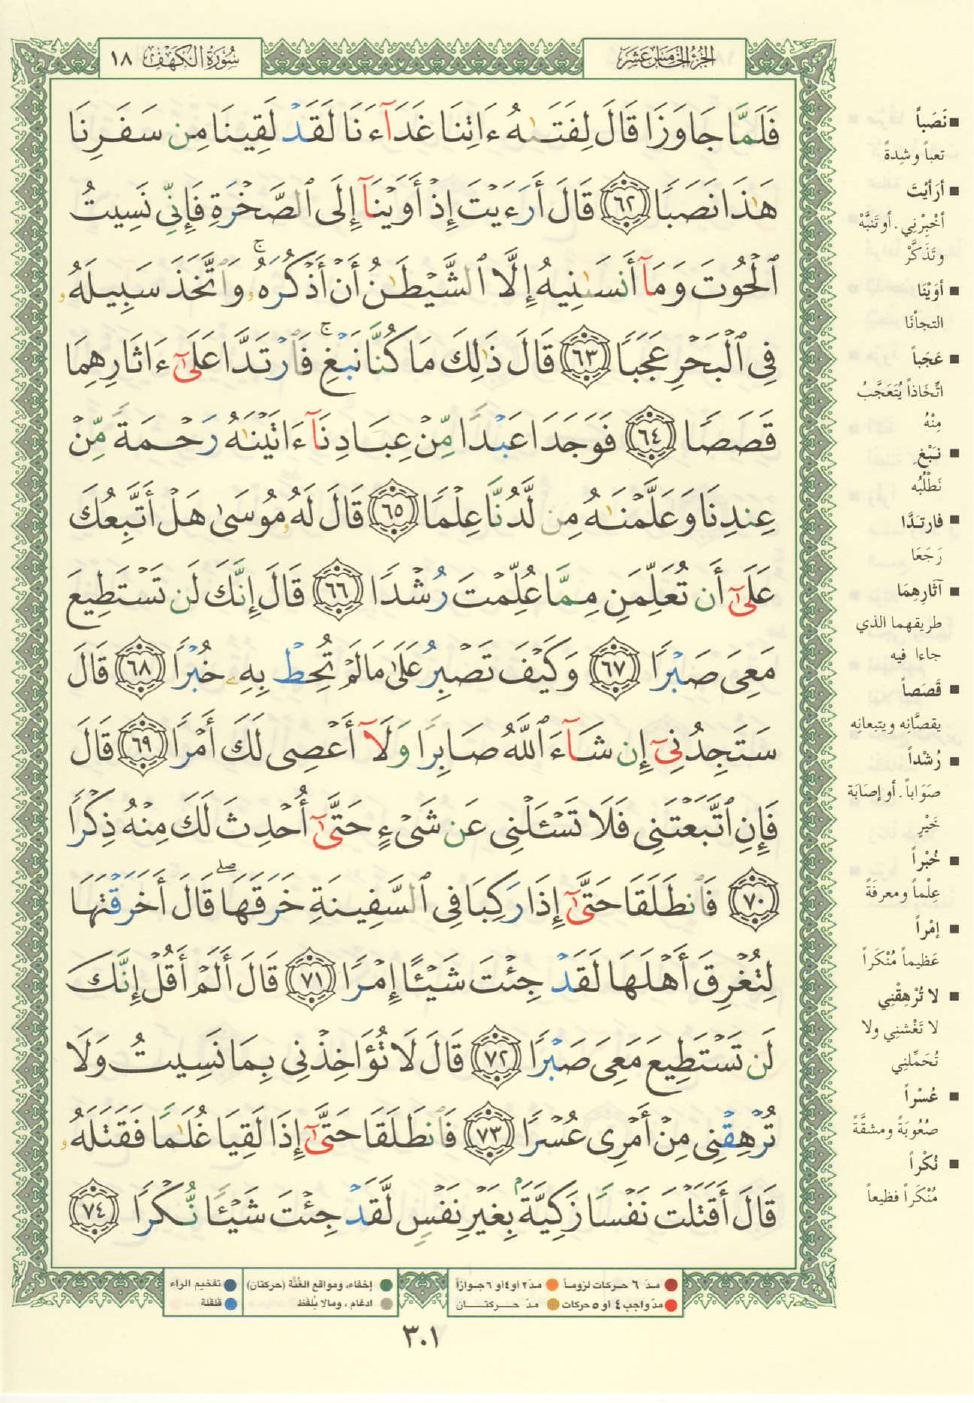 سُورَةُ الكَهْفِ ١٨
الجُزْءُ الخَامِسَ عَشَرَ
فَلَمَّا جَاوَزَا قَالَ لِفَتَىٰهُ ءَاتِنَا غَدَآءَنَا لَقَدْ لَقِينَا مِن سَفَرِنَا
هَٰذَا نَصَبًا ٦٢ قَالَ أَرَءَيْتَ إِذْ أَوَيْنَآ إِلَى ٱلصَّخْرَةِ فَإِنِّى نَسِيتُ
ٱلْحُوتَ وَمَآ أَنسَىٰنِيهُ إِلَّا ٱلشَّيْطَٰنُ أَنْ أَذْكُرَهُۥ ۚ وَٱتَّخَذَ سَبِيلَهُۥ
فِى ٱلْبَحْرِ عَجَبًا ٦٣ قَالَ ذَٰلِكَ مَا كُنَّا نَبْغِ ۚ فَٱرْتَدَّا عَلَىٰٓ ءَاثَارِهِمَا
قَصَصًا ٦٤ فَوَجَدَا عَبْدًا مِّنْ عِبَادِنَآ ءَاتَيْنَٰهُ رَحْمَةً مِّنْ
عِندِنَا وَعَلَّمْنَٰهُ مِن لَّدُنَّا عِلْمًا ٦٥ قَالَ لَهُۥ مُوسَىٰ هَلْ أَتَّبِعُكَ
عَلَىٰٓ أَن تُعَلِّمَنِ مِمَّا عُلِّمْتَ رُشْدًا ٦٦ قَالَ إِنَّكَ لَن تَسْتَطِيعَ
مَعِىَ صَبْرًا ٦٧ وَكَيْفَ تَصْبِرُ عَلَىٰ مَا لَمْ تُحِطْ بِهِۦ خُبْرًا ٦٨ قَالَ
سَتَجِدُنِىٓ إِن شَآءَ ٱللَّهُ صَابِرًا وَلَآ أَعْصِى لَكَ أَمْرًا ٦٩ قَالَ
فَإِنِ ٱتَّبَعْتَنِى فَلَا تَسْـَٔلْنِى عَن شَىْءٍ حَتَّىٰٓ أُحْدِثَ لَكَ مِنْهُ ذِكْرًا
٧٠ فَٱنطَلَقَا حَتَّىٰٓ إِذَا رَكِبَا فِى ٱلسَّفِينَةِ خَرَقَهَا ۖ قَالَ أَخَرَقْتَهَا
لِتُغْرِقَ أَهْلَهَا لَقَدْ جِئْتَ شَيْـًٔا إِمْرًا ٧١ قَالَ أَلَمْ أَقُلْ إِنَّكَ
لَن تَسْتَطِيعَ مَعِىَ صَبْرًا ٧٢ قَالَ لَا تُؤَاخِذْنِى بِمَا نَسِيتُ وَلَا
تُرْهِقْنِى مِنْ أَمْرِى عُسْرًا ٧٣ فَٱنطَلَقَا حَتَّىٰٓ إِذَا لَقِيَا غُلَٰمًا فَقَتَلَهُۥ
قَالَ أَقَتَلْتَ نَفْسًا زَكِيَّةًۢ بِغَيْرِ نَفْسٍ لَّقَدْ جِئْتَ شَيْـًٔا نُّكْرًا ٧٤
■ نَصَباً
تعباً وشِدةً
■ أرَأيْتَ
أخْبِرْنِي. أو تَنَبَّهْ
وتَذَكَّرْ
■ أوَيْنَا
التجأنا
■ عَجَباً
اتِّخَاذاً يُتَعَجَّبُ
مِنْهُ
■ نَبْغِ
نَطْلُبُه
■ فارتدَّا
رَجَعَا
■ آثارِهِمَا
طريقهما الذي
جاءا فيه
■ قَصَصاً
يقصَّانِه ويتبعانِه
■ رُشْداً
صَوَاباً. أو إصَابَة
خَيْرٍ
■ خُبْراً
عِلْماً ومعرفَةً
■ إمْراً
عَظيماً مُنْكَراً
■ لا تُرْهِقْنِي
لا تَغْشِني ولا
تُحَمِّلني
■ عُسْراً
صُعُوبَةً ومشقَّةً
■ نُكْراً
مُنْكَراً فظيعاً
مدّ ٦ حركات لزوماً مدّ ٢ او ٤ او ٦ جوازاً
مدّ واجب ٤ او ٥ حركات مدّ حركتان
إخفاء، ومواقع الغُنَّة (حركتان) تفخيم الراء
ادغام ، ومالا يُلفظ قلقلة
٣٠١